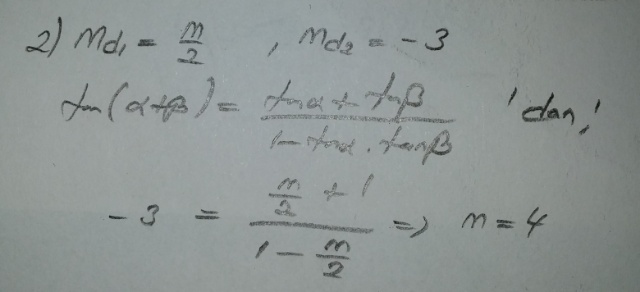 2) md₁ = m/2 , md₂ = -3
tan(α+β) = (tanα + tanβ)/(1 - tanα . tanβ) 'dan,
-3 = (m/2 + 1)/(1 - m/2) => m = 4